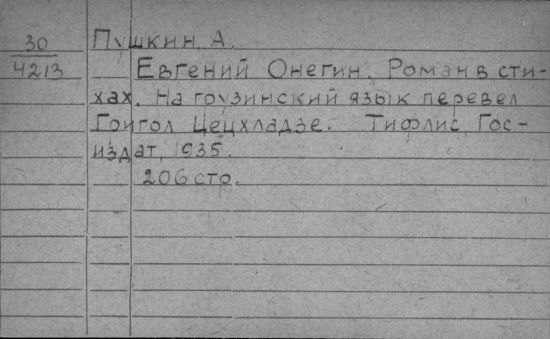 30 Пушкин, А.
4213 Евгений Онегин. Роман в сти-
хах. На грузинский язык перевел
Григол Цецхладзе. Тифлис, Гос-
издат, 1935.
206 стр.